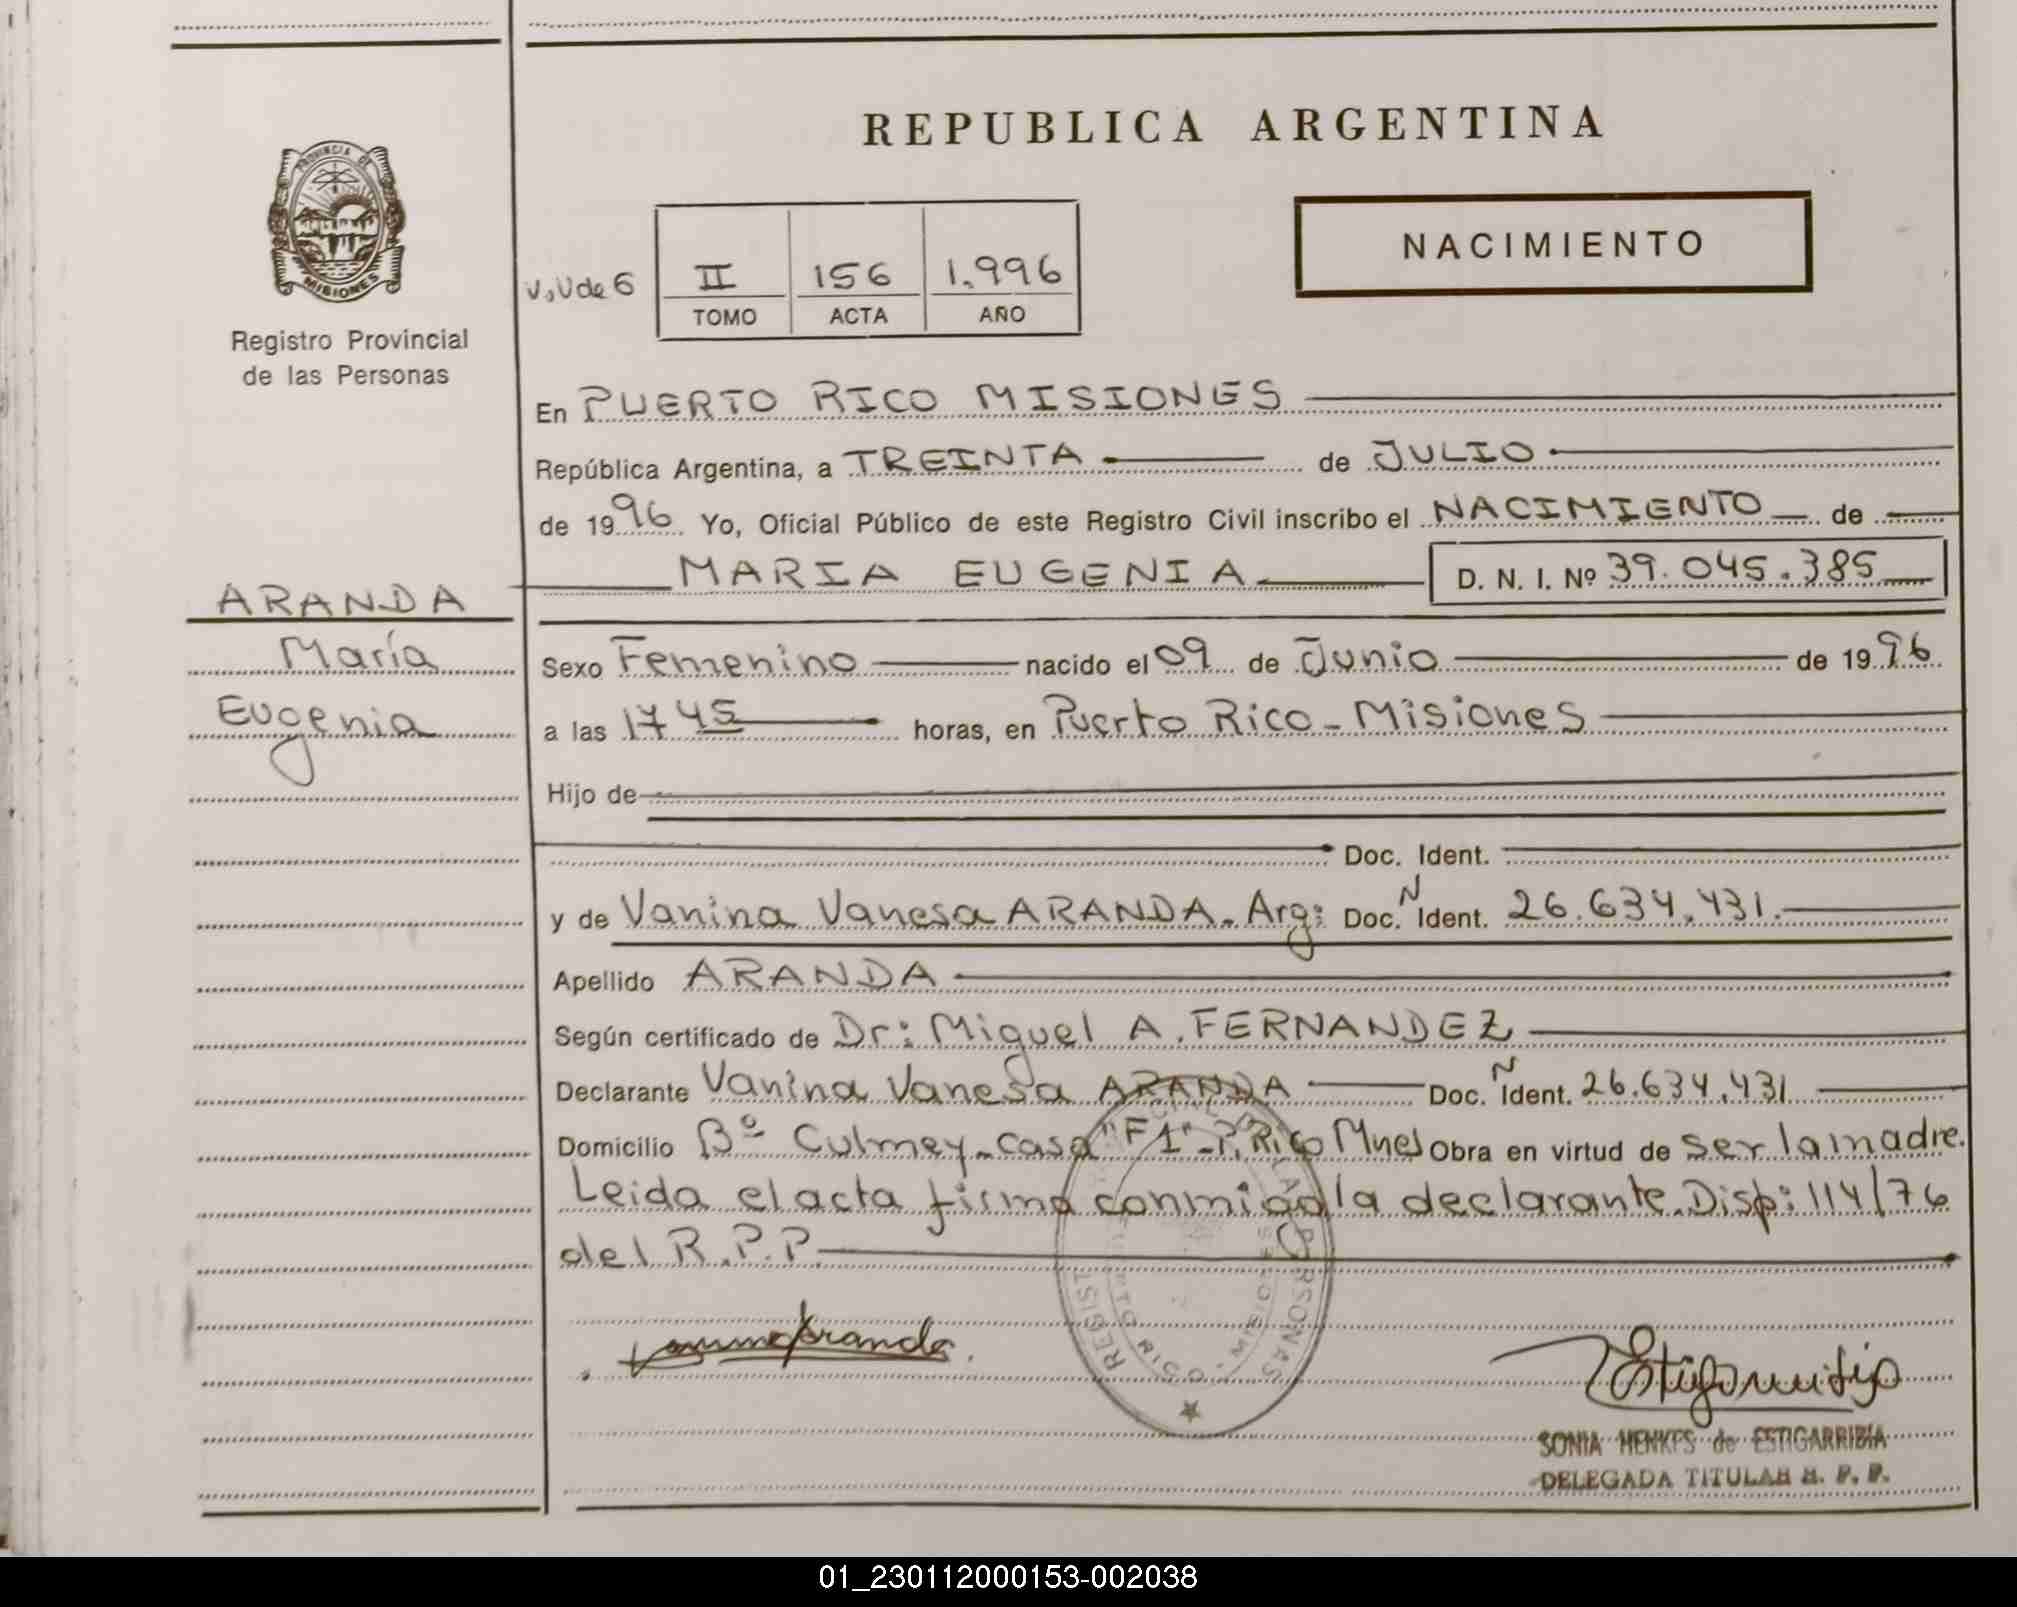 REPUBLICA ARGENTINA
PROVINCIA DE
MISIONES
Registro Provincial
de las Personas
NACIMIENTO
II 156 1.996
TOMO ACTA AÑO
En PUERTO RICO MISIONES
República Argentina, a TREINTA de JULIO
de 1996. Yo, Oficial Público de este Registro Civil inscribo el NACIMIENTO de
MARIA EUGENIA D. N. I. Nº 39.045.385
ARANDA
María
Eugenia
Sexo Femenino nacido el 09 de Junio de 1996
a las 17 45 horas, en Puerto Rico - Misiones
Hijo de
Doc. Ident.
y de Vanina Vanesa ARANDA. Arg: Doc. N Ident. 26.634.431.
Apellido ARANDA
Según certificado de Dr: Miguel A. FERNANDEZ
Declarante Vanina Vanesa ARANDA Doc. N Ident. 26.634.431
Domicilio Bº Culmey - casa "F1" - P. Rico Mnes Obra en virtud de ser la madre.
Leida el acta firma conmigo la declarante. Disp: 114/76
del R.P.P.
SONIA HENKES de ESTIGARRIBIA
DELEGADA TITULAR R. P. P.
01_230112000153-002038